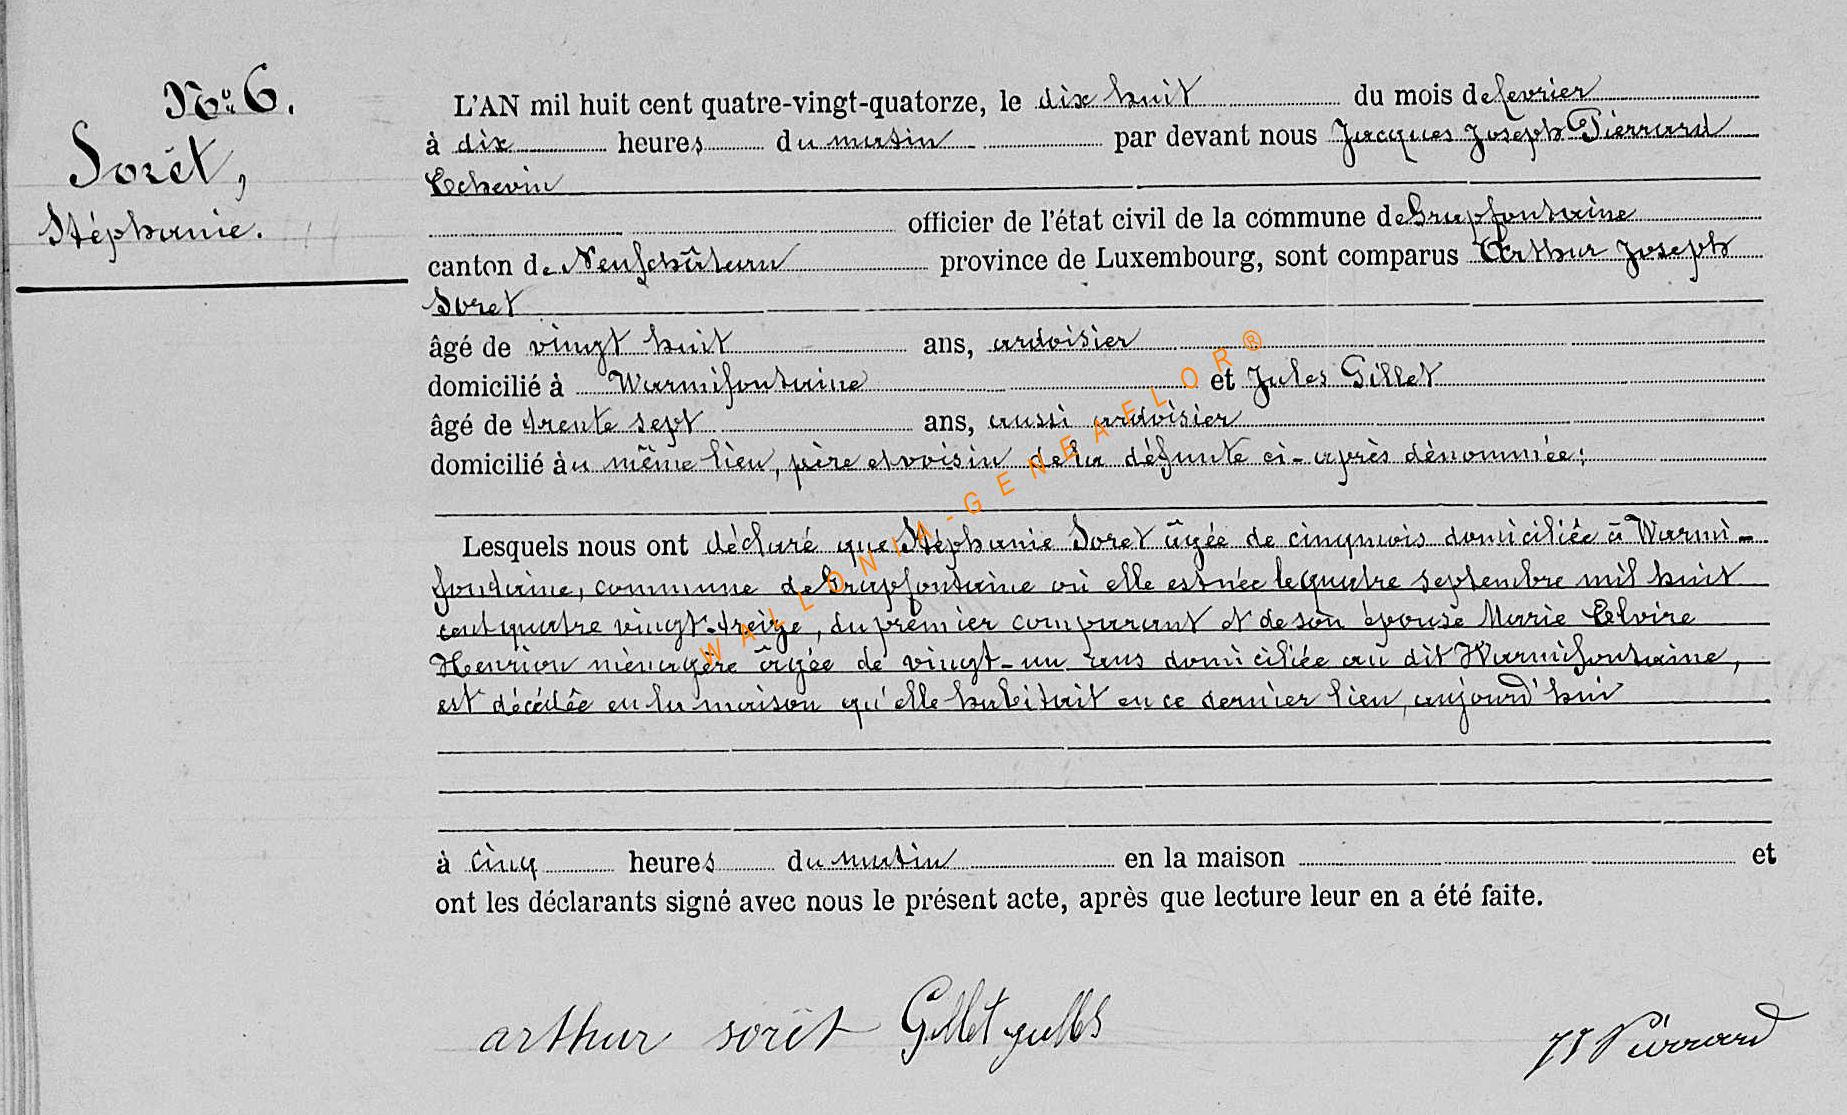 No. 6.
Sorèt,
Stéphanie.
L'AN mil huit cent quatre-vingt-quatorze, le dix huit du mois de fevrier
à dix heures du matin par devant nous Jacques Joseph Pierrard
Echevin
officier de l'état civil de la commune de Grapfontaine
canton de Neufchâteau province de Luxembourg, sont comparus Arthur Joseph
Soret
âgé de vingt huit ans, ardoisier
domicilié à Warmifontaine et Jules Gillet
âgé de trente sept ans, aussi ardoisier
domicilié au même lieu, père et voisin de la défunte ci-après dénommée;
Lesquels nous ont déclaré que Stéphanie Soret âgée de cinq mois domiciliée à Warmi-
fontaine, commune de Grapfontaine où elle est née le quatre septembre mil huit
cent quatre vingt-treize, du premier comparant et de son épouse Marie Elvire
Henrion ménagère âgée de vingt-un ans domiciliée au dit Warmifontaine,
est décédée en la maison qu'elle habitait en ce dernier lieu, aujourd'hui
à cinq heures du matin en la maison et
ont les déclarants signé avec nous le présent acte, après que lecture leur en a été faite.
arthur sorèt Gillet jules JJ Pierrard
WALLONIA-GENEAELOR®